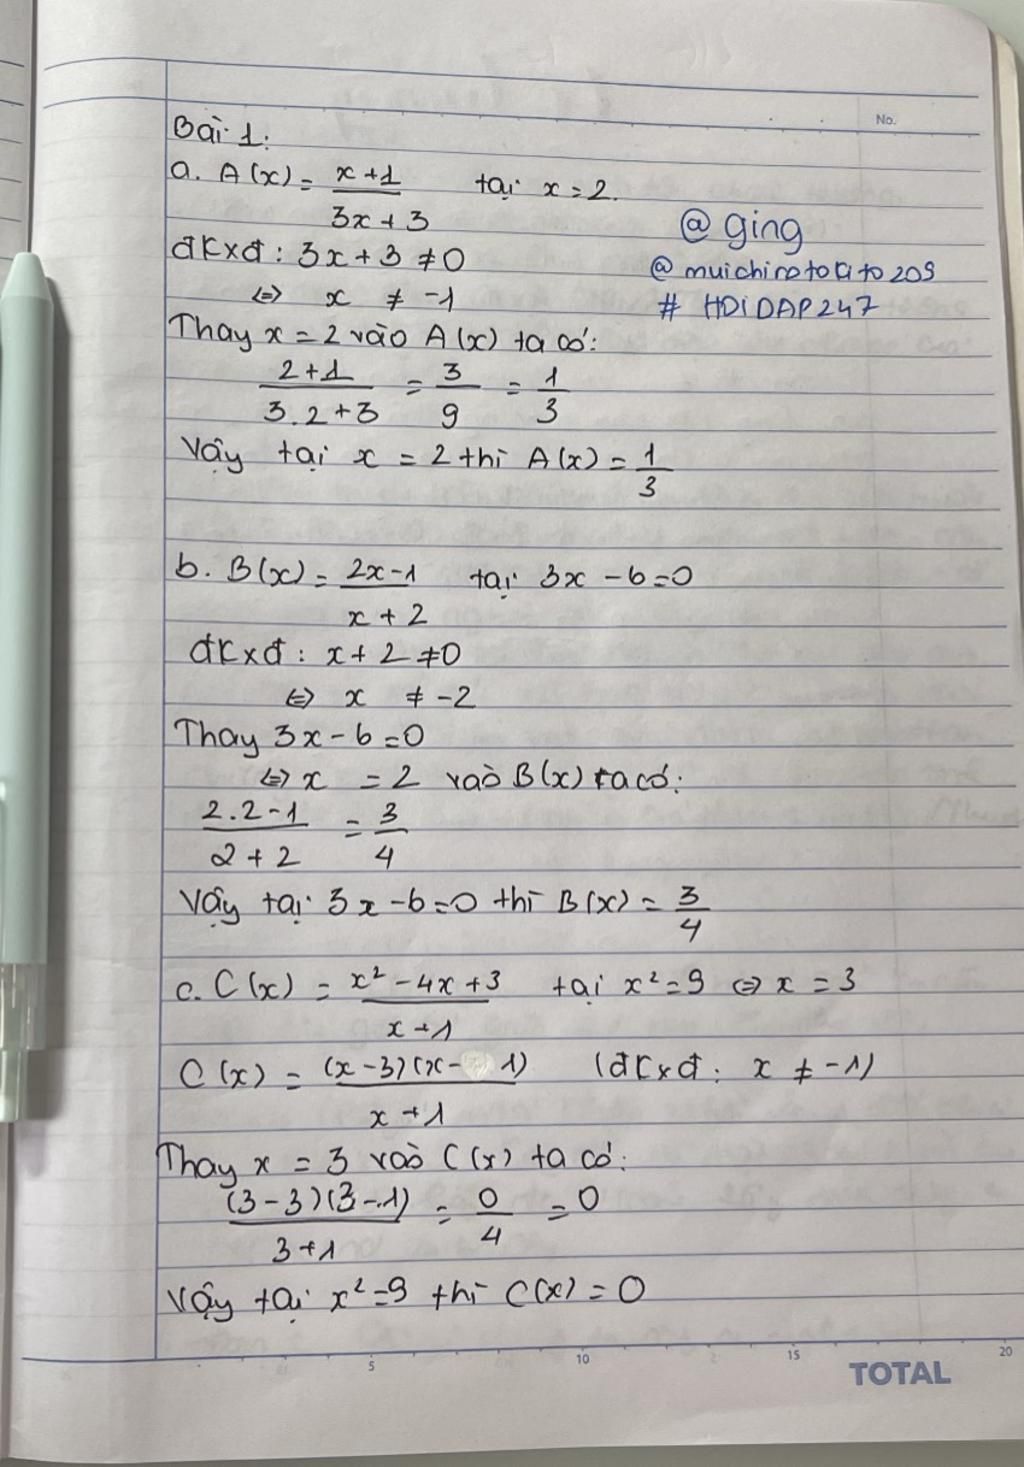 No.
Bài 1:
a. A(x) = x+1 / 3x+3 tại x = 2.
@ ging
đkxđ: 3x + 3 ≠ 0
@ muichirotokito209
⇔ x ≠ -1
# HOIDAP247
Thay x = 2 vào A(x) ta có:
2+1 / 3.2+3 = 3/9 = 1/3
Vậy tại x = 2 thì A(x) = 1/3
b. B(x) = 2x-1 / x+2 tại 3x - 6 = 0
đkxđ: x + 2 ≠ 0
⇔ x ≠ -2
Thay 3x - 6 = 0
⇔ x = 2 vào B(x) ta có:
2.2-1 / 2+2 = 3/4
Vậy tại 3x - 6 = 0 thì B(x) = 3/4
c. C(x) = x² - 4x + 3 / x+1 tại x² = 9 ⇔ x = 3
C(x) = (x-3)(x-1) / x+1 (đkxđ: x ≠ -1)
Thay x = 3 vào C(x) ta có:
(3-3)(3-1) / 3+1 = 0/4 = 0
Vậy tại x² = 9 thì C(x) = 0
5 10 15 20
TOTAL